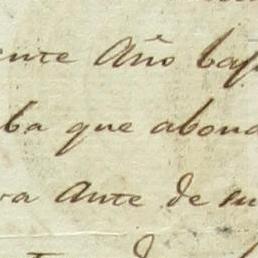 ente Año baj
ba que abona
va ante de su